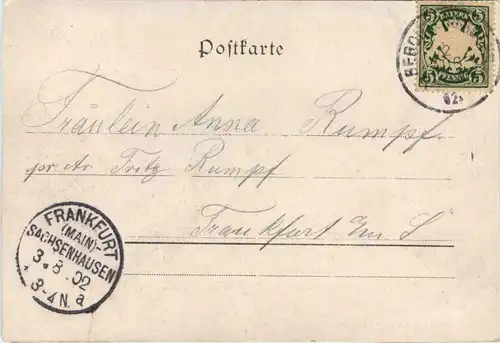 BAYERN
5 5
5 PFENNIG 5
Postkarte
Fräulein Anna Rumpf
pr. Adr. Fritz Rumpf
Frankfurt
FRANKFURT
(MAIN)-
SACHSENHAUSEN
3.8.02
3-4 N. a